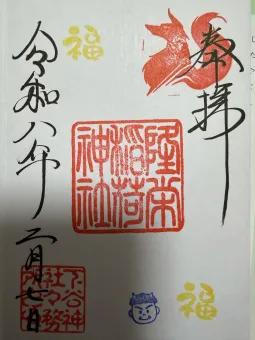 奉拝
福
隆栄
稲荷
神社
福
令和八年二月七日
下谷神
社々務